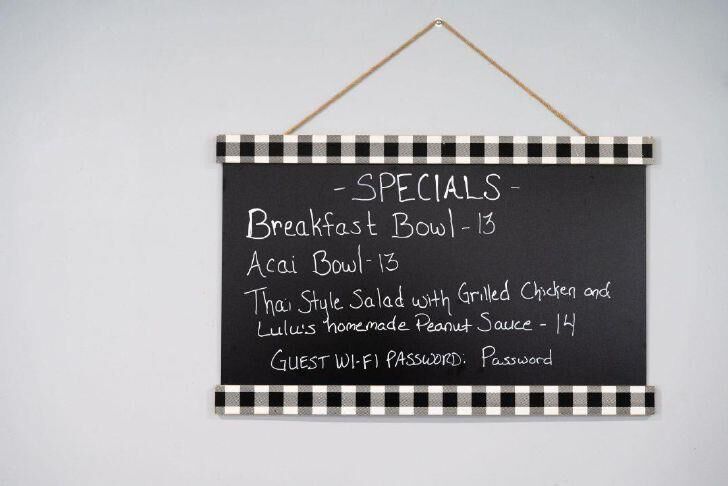 - SPECIALS -
Breakfast Bowl - 13
Acai Bowl - 13
Thai Style Salad with Grilled Chicken and
Lulu's homemade Peanut Sauce - 14
GUEST WI-FI PASSWORD: Password